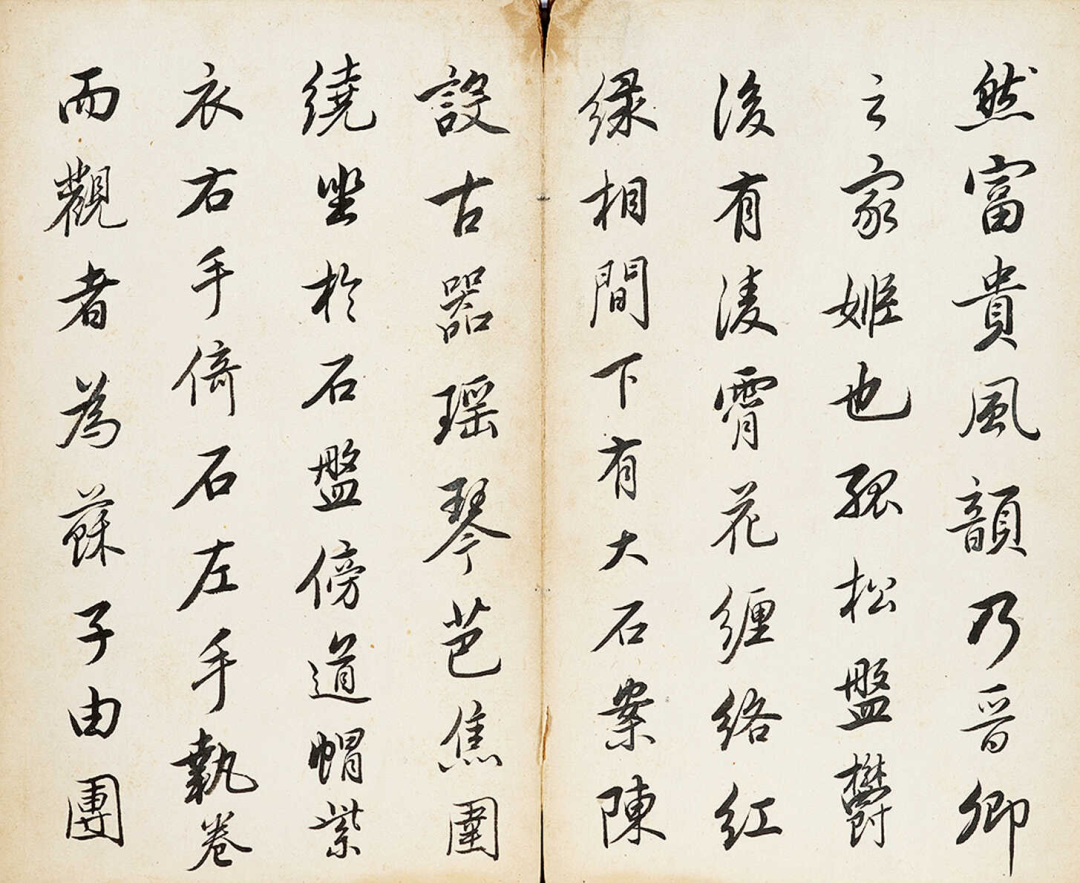 然富貴風韻乃晉卿
之家姬也孤松盤欝
後有凌霄花纏絡紅
綠相間下有大石案陳
設古器瑤琴芭焦圍
繞坐於石盤傍道帽紫
衣右手倚石左手執卷
而觀者為蘇子由團